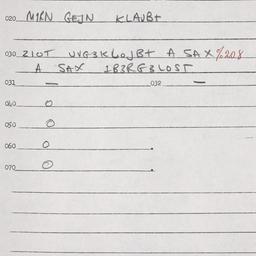 020 M1RN GEJN KLAUBT
030 210T UVG3KLOJBT A SAX %208
A SAX 1B3RG3LOST
031 — 032 —
040 O
050 O
060 O .
070 O .